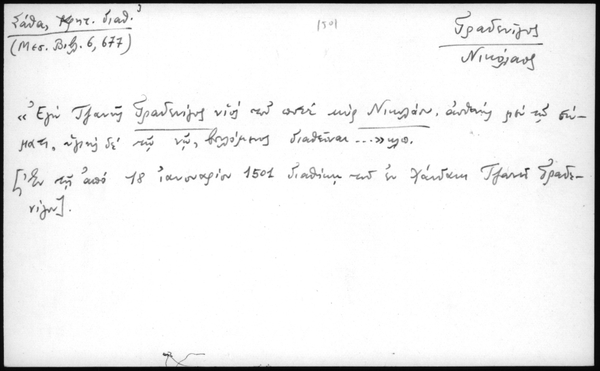 Σάθα, Κρητ. διαθ.
(Μεσ. Βιβλ. 6, 677)
1501
Γραδενίγος
Νικόλαος
«Ἐγὼ Τζανῆς Γραδενίγος υἱὸς τοῦ ποτὲ κὺρ Νικολάου, ἀσθενὴς μὲν τῷ σώ-
ματι, ὑγιὴς δὲ τῷ νῷ, βουλόμενος διαθεῖναι...» κλπ.
[Ἐν τῇ ἀπὸ 18 ἰανουαρίου 1501 διαθήκῃ τοῦ ἐν Χάνδακι Τζανῆ Γραδε-
νίγου].